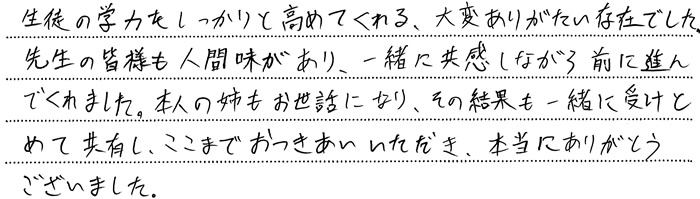 生徒の学力をしっかりと高めてくれる、大変ありがたい存在でした。
先生の皆様も人間味があり、一緒に共感しながら前に進ん
でくれました。本人の姉もお世話になり、その結果も一緒に受けと
めて共有し、ここまでおつきあいいただき、本当にありがとう
ございました。